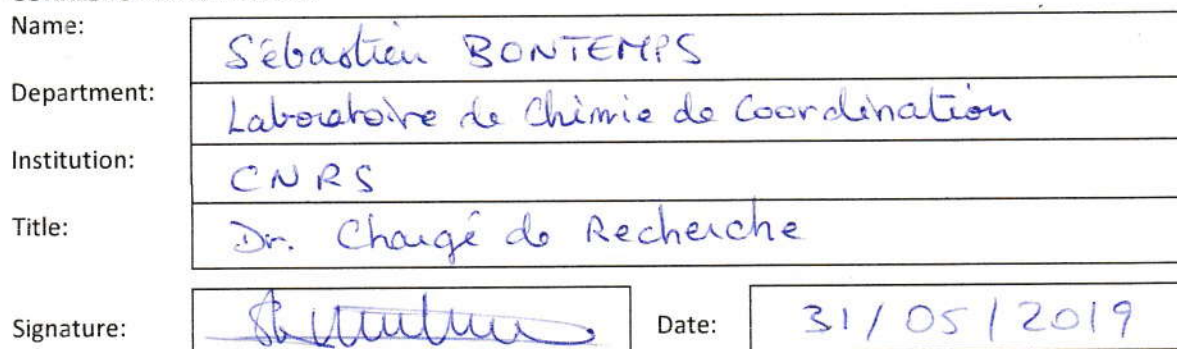 Name: Sébastien BONTEMPS
Department: Laboratoire de Chimie de Coordination
Institution: CNRS
Title: Dr. Chargé de Recherche
Signature: Date: 31/05/2019